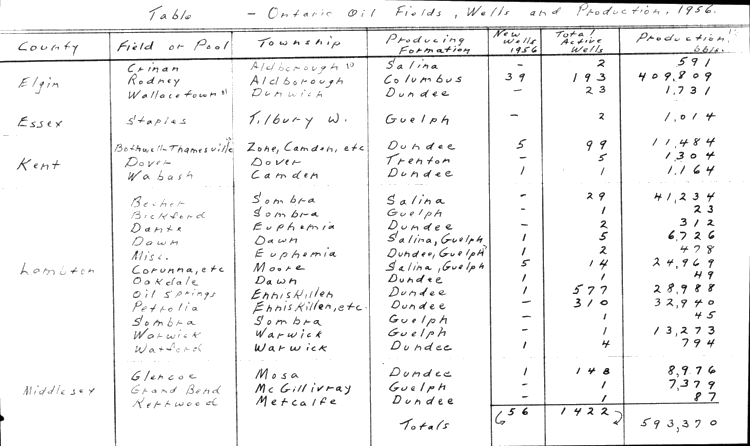 Table - Ontario Oil Fields, Wells and Production, 1956.
County Field or Pool Township Producing Formation New Wells 1956 Total Active Wells Production bbls.
Crinan Aldborough Salina - 2 591
Elgin Rodney Aldborough Columbus 39 193 409,809
Wallacetown Dunwich Dundee - 23 1,731
Essex Staples Tilbury W. Guelph - 2 1,014
Bothwell-Thamesville Zone, Camden, etc Dundee 5 99 11,484
Kent Dover Dover Trenton - 5 1,304
Wabash Camden Dundee 1 1 1,164
Becher Sombra Salina - 29 41,234
Bickford Sombra Guelph - 1 23
Dante Euphemia Dundee - 2 312
Dawn Dawn Salina, Guelph 1 5 6,726
Misc. Euphemia Dundee, Guelph 1 2 478
Lambton Corunna, etc Moore Salina, Guelph 5 14 24,969
Oakdale Dawn Dundee 1 1 49
Oil Springs Enniskillen Dundee 1 577 28,988
Petrolia Enniskillen, etc. Dundee - 310 32,940
Sombra Sombra Guelph - 1 45
Warwick Warwick Guelph - 1 13,273
Watford Warwick Dundee 1 4 794
Glencoe Mosa Dundee 1 148 8,976
Middlesex Grand Bend McGillivray Guelph - 1 7,379
Kerrwood Metcalfe Dundee - 1 87
Totals 56 1422 593,370